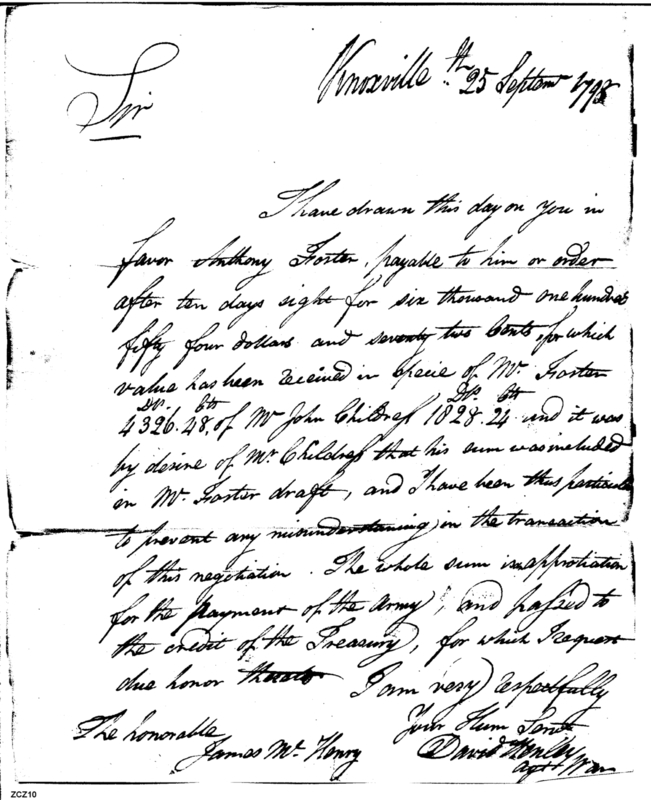 Knoxville 25th Septemr 1798
Sir
I have drawn this day on you in
favor Anthony Foster, payable to him or order
after ten days sight for six thousand one hundred
fifty four dollars and seventy two Cents, for which
value has been received in specie of Mr Foster
Drs Cts Drs Cts
4326.48. of Mr John Childress 1828.24 and it was
by desire of Mr Childress that his sum was included
in Mr Foster draft, and I have been thus particular
to prevent any misunderstaning, in the transaction
of this negotiation. The whole sum is approtiation
for the payment of the Army, and passed to
the credit of the Treasury, for which I request
due honor thereto I am very respectfully
Your Hum Servt
The honorable
James Mc Henry
David Henley
agt War
ZCZ10